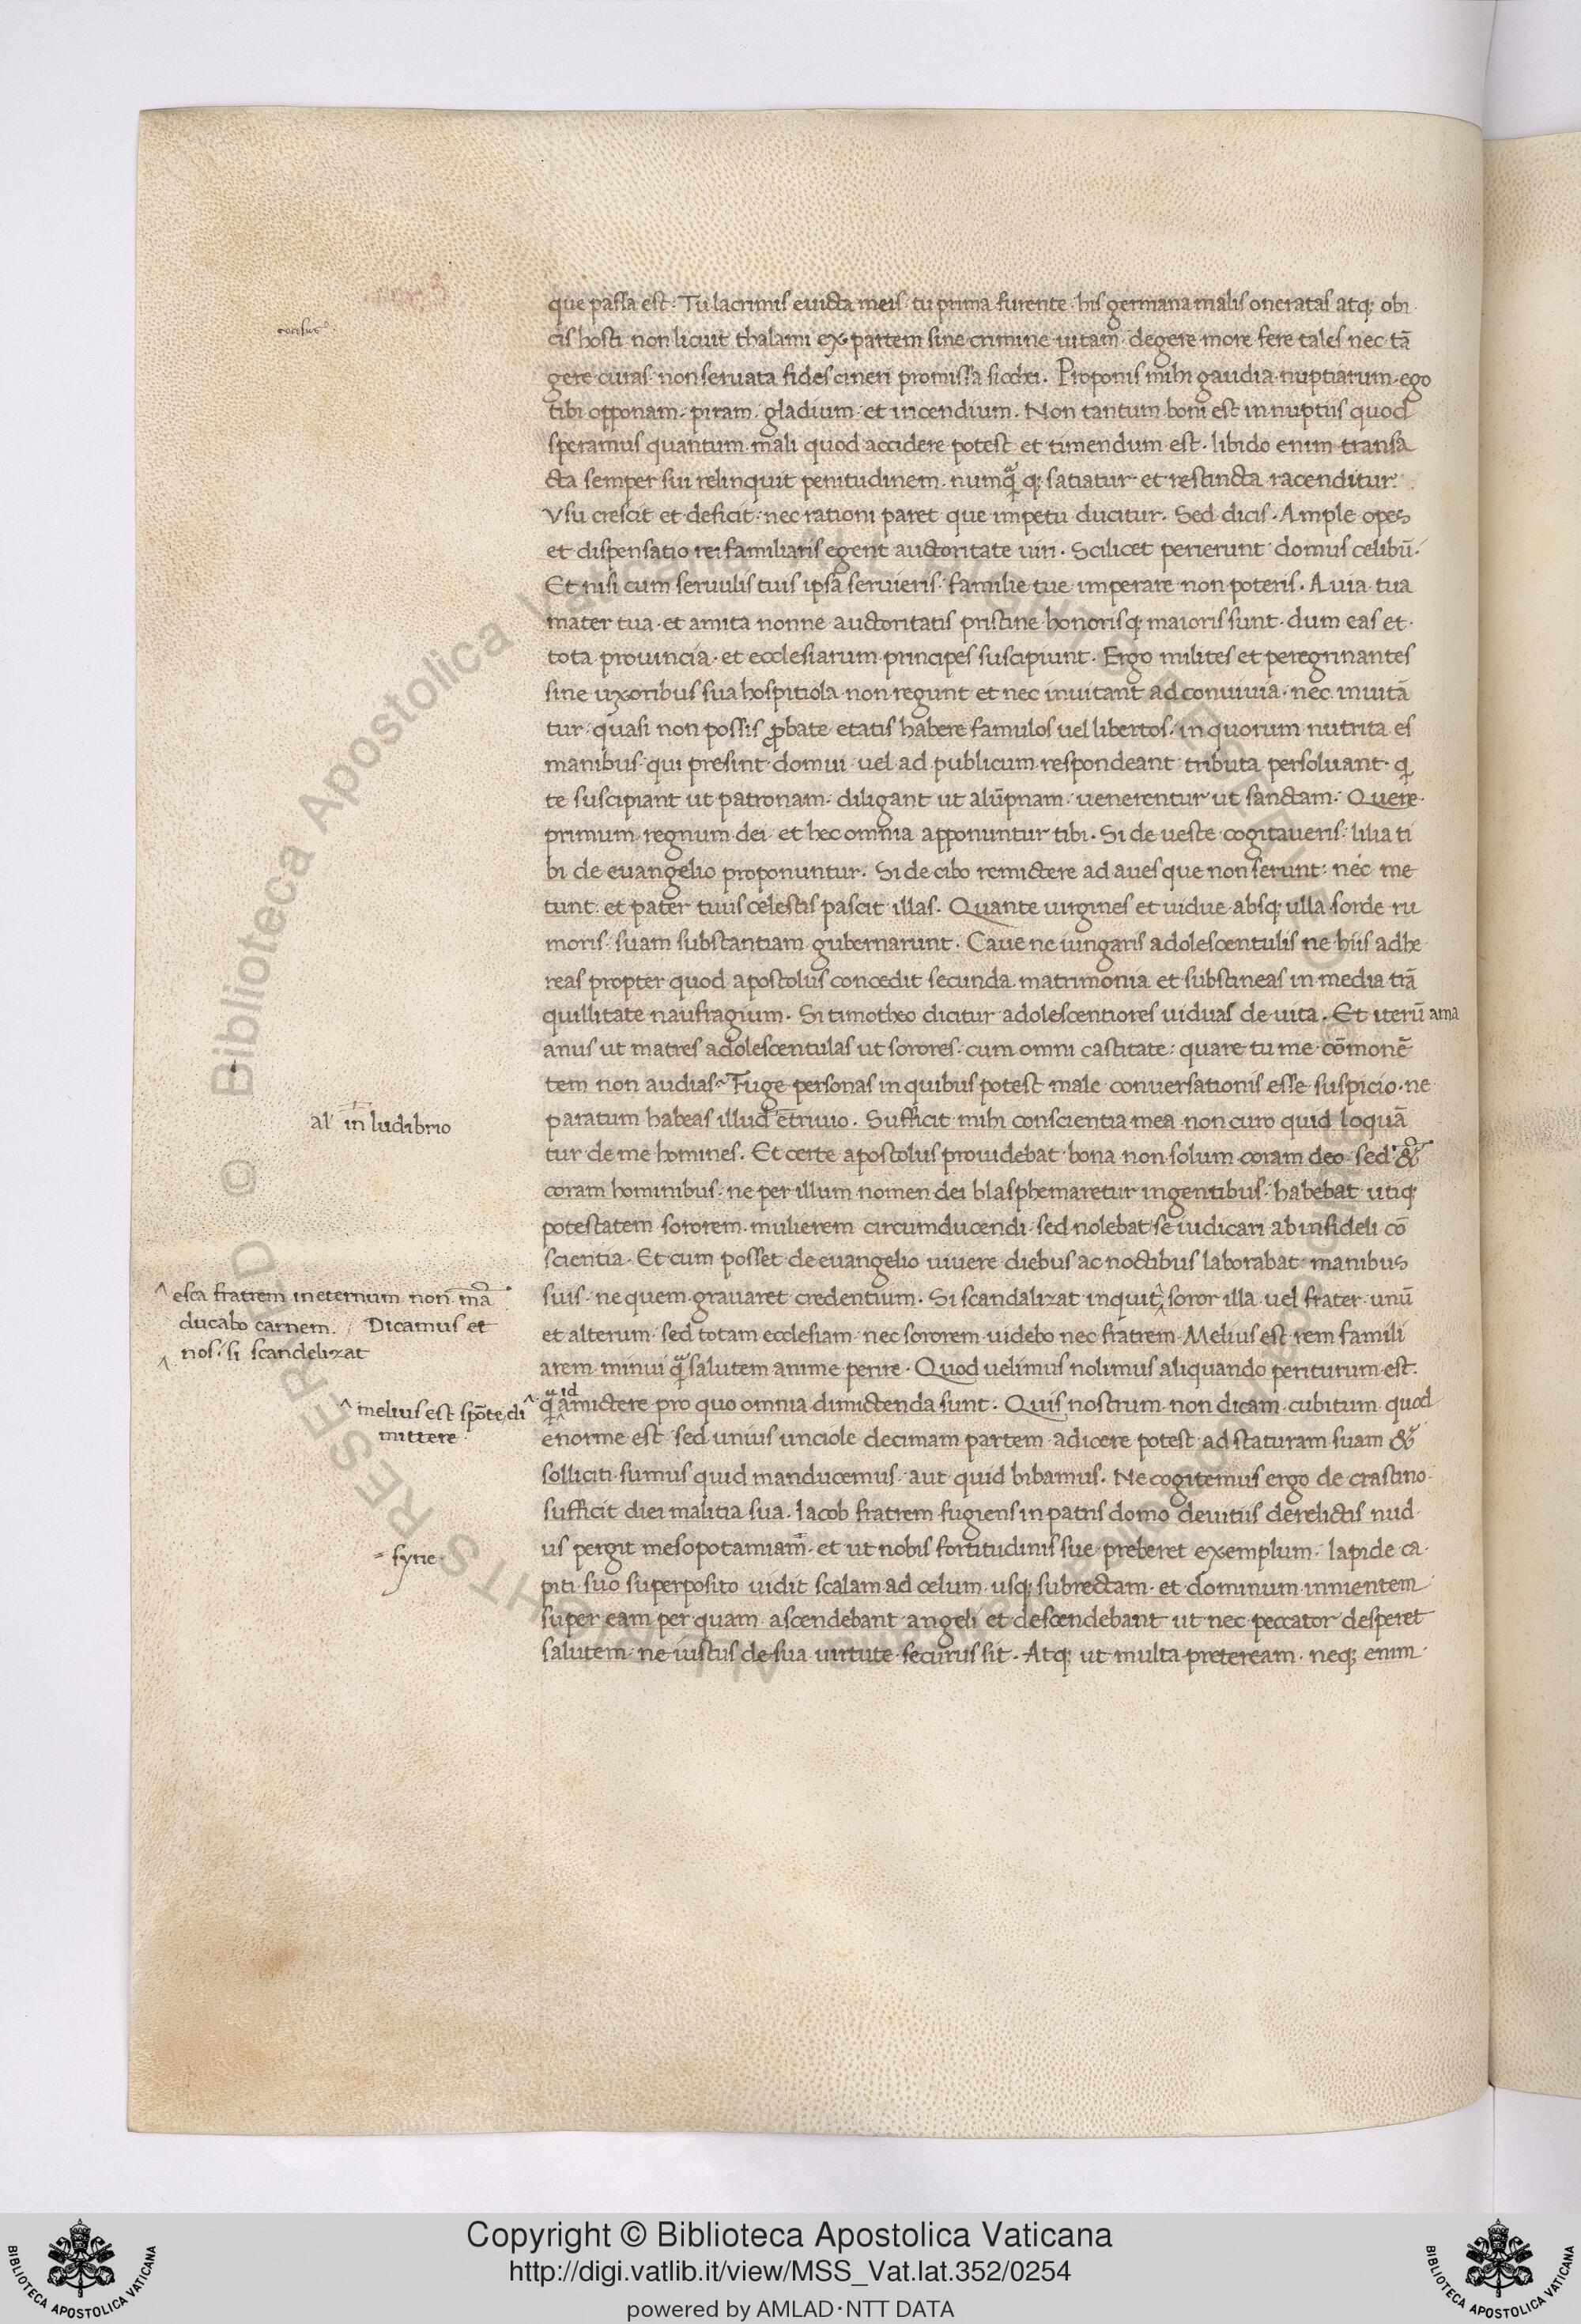 que passa est: Tu lacrimis euicta meis: tu prima furente· his germana malis oneratas atq; obi
cis hosti· non licuit thalami ex partem sine crimine uitam· degere more fere tales nec tā
gere curas· non seruata fides cineri promissa sicchei· Proponis mihi gaudia nuptiarum· ego
tibi opponam· piram· gladium· et incendium· Non tantum boni est in nuptiis quod
speramus quantum mali quod accidere potest et timendum est· libido enim transa
cta semper sui relinquit penitudinem· numq̄ q; satiatur et restincta racenditur:
Vsu crescit et deficit: nec rationi paret que impetu ducitur· Sed dicis· Ample opes
et dispensatio rei familiaris egent auctoritate uiri· Scilicet perierunt domus celibū·
Et nisi cum seruulis tuis ipsa seruieris: familie tue imperare non poteris· Auia tua
mater tua· et amita nonne auctoritatis pristine honorisq; maioris sunt· dum eas et·
tota prouincia· et ecclesiarum principes suscipiunt· Ergo milites et peregrinantes
sine uxoribus sua hospitiola non regunt et nec inuitant ad conuiuia· nec inuitā
tur· quasi non possis ꝓbate etatis habere famulos uel libertos· in quorum nutrita es
manibus· qui presint domui· uel ad publicum respondeant tributa persoluant· q̄
te suscipiant ut patronam· diligant ut alūpnam· uenerentur ut sanctam· Quere·
primum regnum dei· et hec omnia apponuntur tibi· Si de ueste cogitaueris: lilia ti
bi de euangelio proponuntur· Si de cibo remictere ad aues que non serunt: nec me
tunt· et pater tuus celestis pascit illas· Quante uirgines et uidue absq; ulla sorde ru
moris· suam substantiam gubernarunt· Caue ne iungaris adolescentulis ne hiis adhe
reas propter quod apostolus concedit secunda matrimonia et substineas in media trā
quillitate naufragium· Si timotheo dicitur adolescentiores uiduas deuita· Et iterū ama
anus ut matres adolescentulas ut sorores· cum omni castitate: quare tu me cōmonē
tem non audias· Fuge personas in quibus potest male conuersationis esse suspicio· ne
al' in ludibrio
paratum habeas illud etriuio· Sufficit mihi conscientia mea non curo quid loquā
tur de me homines· Et certe apostolus prouidebat bona non solum coram deo sed &
coram hominibus· ne per illum nomen dei blasphemaretur in gentibus· habebat utiq;
potestatem sororem mulierem circumducendi· sed nolebat se iudicari ab infideli cō
scientia· Et cum posset de euangelio uiuere diebus ac noctibus laborabat manibus
^ esca fratrem in eternum non mā
ducabo carnem· Dicamus et
nos· si scandelizat
suis· ne quem grauaret credentium· Si scandalizat inquit^ soror illa uel frater unū
et alterum· sed totam ecclesiam· nec sororem uidebo nec fratrem· Melius est rem famili
arem minui q̄ salutem anime perire· Quod uelimus nolimus aliquando periturum est·
^ melius est spōte di
mittere·
q̄ id amictere pro quo omnia dimictenda sunt· Quis nostrum non dicam cubitum quod
enorme est· sed unius unciole decimam partem adicere potest ad staturam suam &
solliciti sumus quid manducemus· aut quid bibamus· Ne cogitemus ergo de crastino·
sufficit diei malitia sua· Iacob fratrem fugiens in patris domo deuitiis derelictis nud
= syrie
us pergit mesopotamiam· et ut nobis fortitudinis sue preberet exemplum· lapide ca
piti suo superposito uidit scalam ad celum usq; subrectam· et dominum innientem
super eam per quam ascendebant angeli et descendebant ut nec peccator desperet
salutem· ne iustus de sua uirtute securus sit· Atq; ut multa preteream· neq; enim·
© Biblioteca Apostolica Vaticana
ALL RIGHTS RESERVED
Copyright © Biblioteca Apostolica Vaticana
http://digi.vatlib.it/view/MSS_Vat.lat.352/0254
powered by AMLAD·NTT DATA
BIBLIOTECA APOSTOLICA VATICANA
BIBLIOTECA APOSTOLICA VATICANA